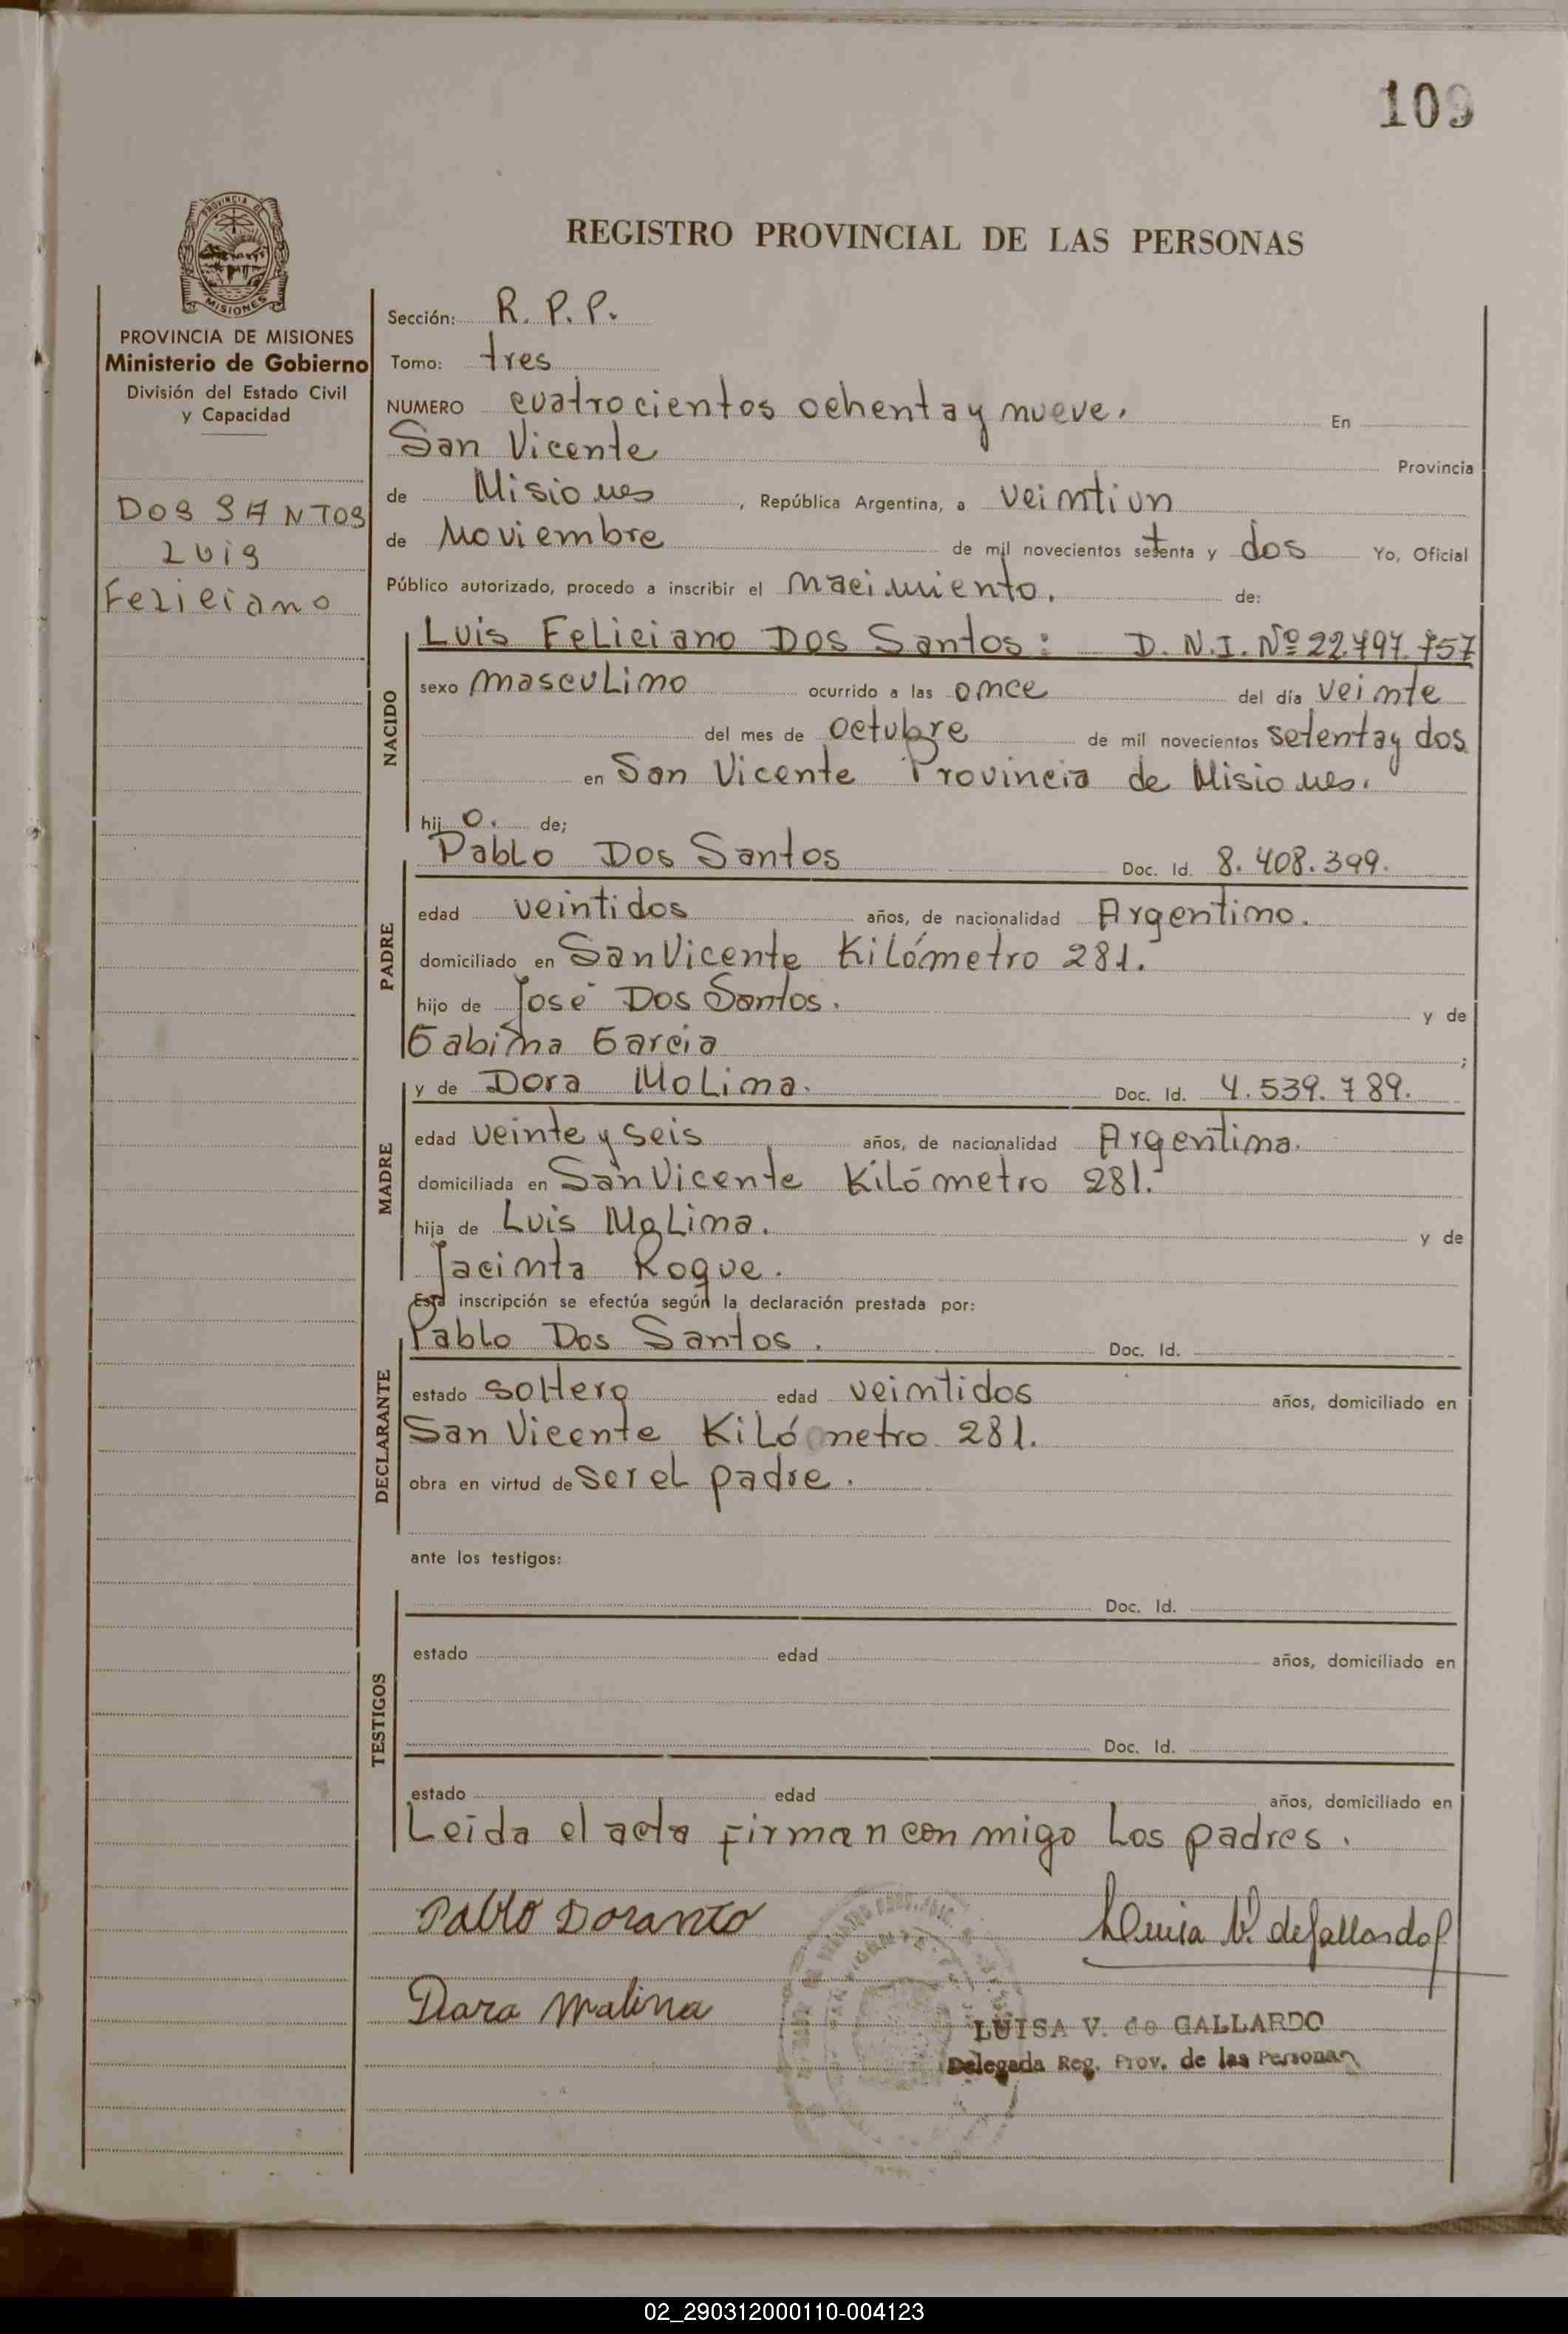 109
REGISTRO PROVINCIAL DE LAS PERSONAS
PROVINCIA DE MISIONES
MISIONES
PROVINCIA DE MISIONES
Ministerio de Gobierno
División del Estado Civil
y Capacidad
DOS SANTOS
LUIS
Feliciano
Sección: R. P. P.
Tomo: tres
NUMERO cuatrocientos ochenta y nueve. En
San Vicente Provincia
de Misiones, República Argentina, a veintiun
de Noviembre de mil novecientos setenta y dos Yo, Oficial
Público autorizado, procedo a inscribir el nacimiento. de:
NACIDO
Luis Feliciano Dos Santos: D. N. I. Nº 22.797.757
sexo masculino ocurrido a las once del día veinte
del mes de octubre de mil novecientos setenta y dos
en San Vicente Provincia de Misiones.
hijo. de;
PADRE
Pablo Dos Santos Doc. Id. 8.408.399.
edad veintidos años, de nacionalidad Argentino.
domiciliado en San Vicente Kilómetro 281.
hijo de José Dos Santos. y de
Gabina Garcia ;
MADRE
y de Dora Molina. Doc. Id. 4.539.789.
edad veinte y seis años, de nacionalidad Argentina.
domiciliada en San Vicente Kilómetro 281.
hija de Luis Molina. y de
Jacinta Roque.
Esta inscripción se efectúa según la declaración prestada por:
DECLARANTE
Pablo Dos Santos. Doc. Id.
estado soltero edad veintidos años, domiciliado en
San Vicente Kilómetro 281.
obra en virtud de ser el padre.
ante los testigos:
TESTIGOS
Doc. Id.
estado edad años, domiciliado en
Doc. Id.
estado edad años, domiciliado en
Leida el acta firman con migo los padres.
Pablo Doranto
Luisa V. de Gallardo
Dora Molina
LUISA V. de GALLARDO
Delegada Reg. Prov. de las Personas
02_290312000110-004123